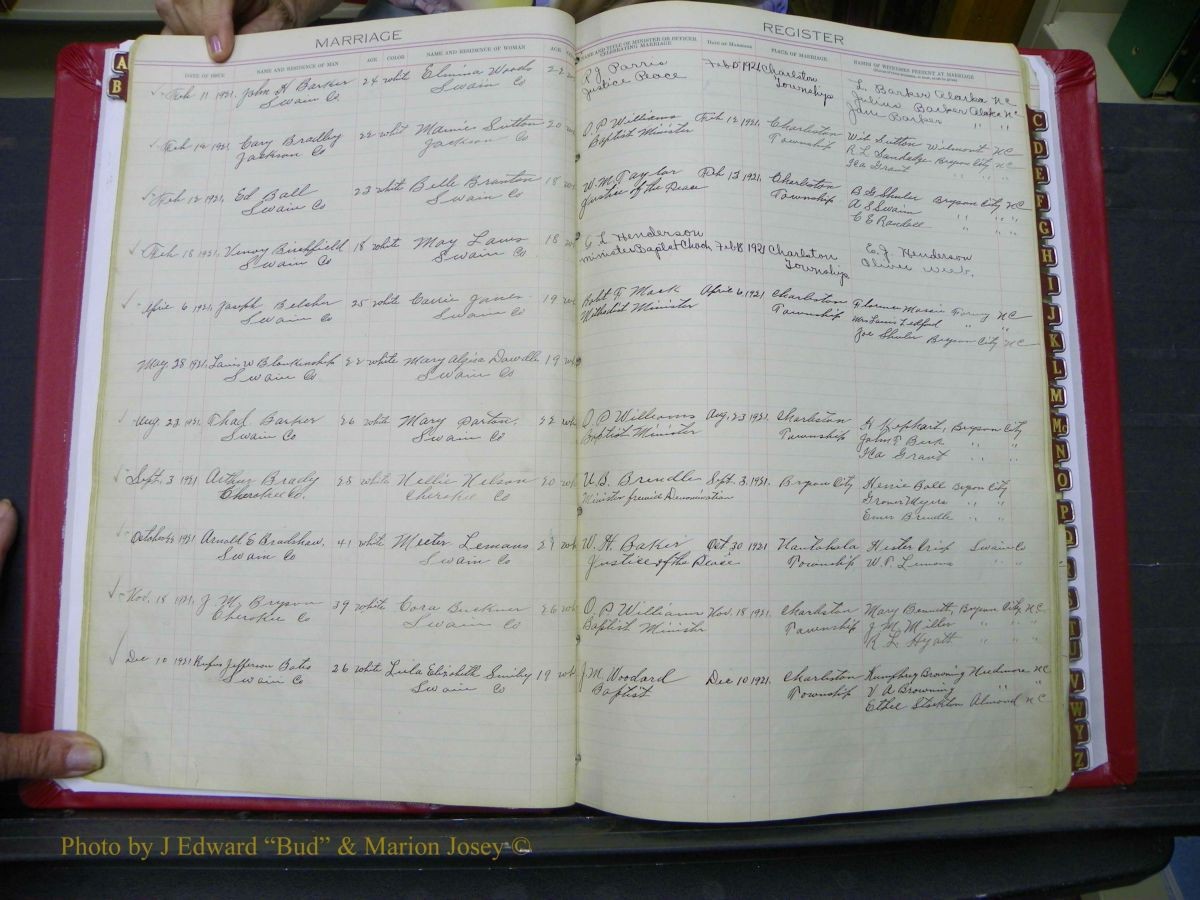 MARRIAGE
REGISTER
DATE OF ISSUE NAME AND RESIDENCE OF MAN AGE COLOR NAME AND RESIDENCE OF WOMAN AGE NAME AND TITLE OF MINISTER OR OFFICER CELEBRATING MARRIAGE DATE OF MARRIAGE PLACE OF MARRIAGE NAMES OF WITNESSES PRESENT AT MARRIAGE
Feb 11 1921 John H Barker 24 white Elmina Woods 22 P. J. Parris Feb 1921 Charlston L. Barker Alarka NC
Swain Co Swain Co Justice Peace Townships Julius Barker Alarka NC
Jane Barker " "
Feb 12 1921 Cary Bradley 22 whit Mamie Sutton 20 O. P Williams Feb 12 1921 Charleston Wilmont NC
Jackson Co Jackson Co Baptist Minister Township R L Sandidge Bryson City NC
Ila Grant " " "
Feb 12 1921 Ed Ball 23 white Belle Branton 18 W. M. Taylor Feb 12 1921 Charleston B G Shuler Bryson City NC
Swain Co Swain Co Justice of the Peace Township A S Swain " " "
C E Randall " " "
Feb 18 1921 Birchfield 18 white May Laws 18 C L Henderson Feb 18 1921 Charlston E. J. Henderson
Swain Co Swain Co minister Baptist Church Townships Oliver
April 6 1921 Joseph Belcher 25 white Carrie Jones 19 Robt F. Mock April 6, 1921 Charleston Florence Massie NC
Swain Co Swain Co Methodist Minister Township Mrs Ledford " "
Joe Shuler Bryson City NC
May 28 1921 W Blankinship 22 white Mary Dowdle 19
Swain Co Swain Co
Aug. 23 1921 Thad Barker 26 white Mary Parton 22 O P Williams Aug. 23 1921 Charleston H Kephart, Bryson City
Swain Co Swain Co Baptist Minister Township John T Burk " "
Ila Grant " "
Sept. 3 1921 Arthur Brady 25 white Nellie Nelson 20 U. S. Brendle Sept. 3, 1921 Bryson City Ball Bryson City
Cherokee Co. Cherokee Co Minister Denomination Grover Myers " "
Brendle " "
October 1921 Arnold E Bradshaw 41 white Meeter Lemans W. H. Baker Oct 30 1921 Nantahala Hester Crisp Swain Co
Swain Co Swain Co Justice of the Peace Township W. T. Lemons " "
Nov. 18 1921 J M Bryson 39 white Cora Buckner 26 O. P Williams Nov. 18 1921 Charleston Mary Bennett, Bryson City NC
Cherokee Co Swain Co Baptist Minister Township J M Miller " " "
R L Hyatt " " "
Dec 10 1921 Rufus Jefferson Bates 26 white Lula Elizabeth Smiley 19 J M Woodard Dec 10 1921 Charleston Humphrey Browning Needmore NC
Swain Co Swain Co Baptist Township V A Browning "
Ethel Stockton Almond NC
A
B
C
D
E
F
G
H
I
J
K
L
M
Mc
N
O
P
Q
T
U
V
W
Y
Z
Photo by J Edward “Bud” & Marion Josey ©